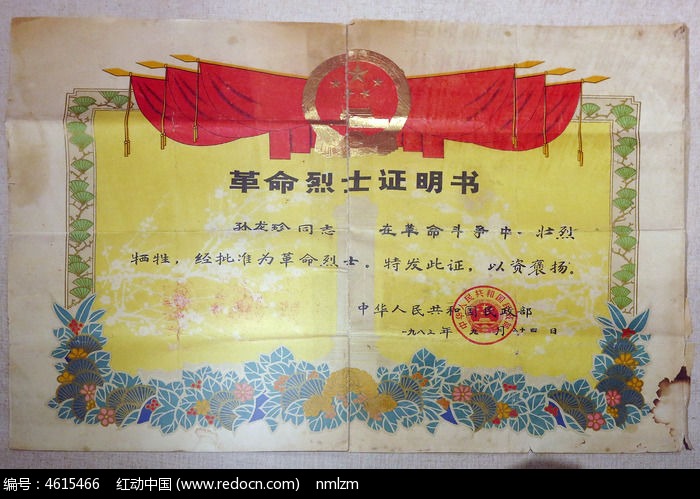 革命烈士证明书
孙龙珍同志 在革命斗争中，壮烈
牺牲，经批准为革命烈士。特发此证，以资褒扬。
中华人民共和国民政部
一九八三年九月 十四日
中华人民共和国民政部
编号：4615466 红动中国 (www.redocn.com) nmlzm